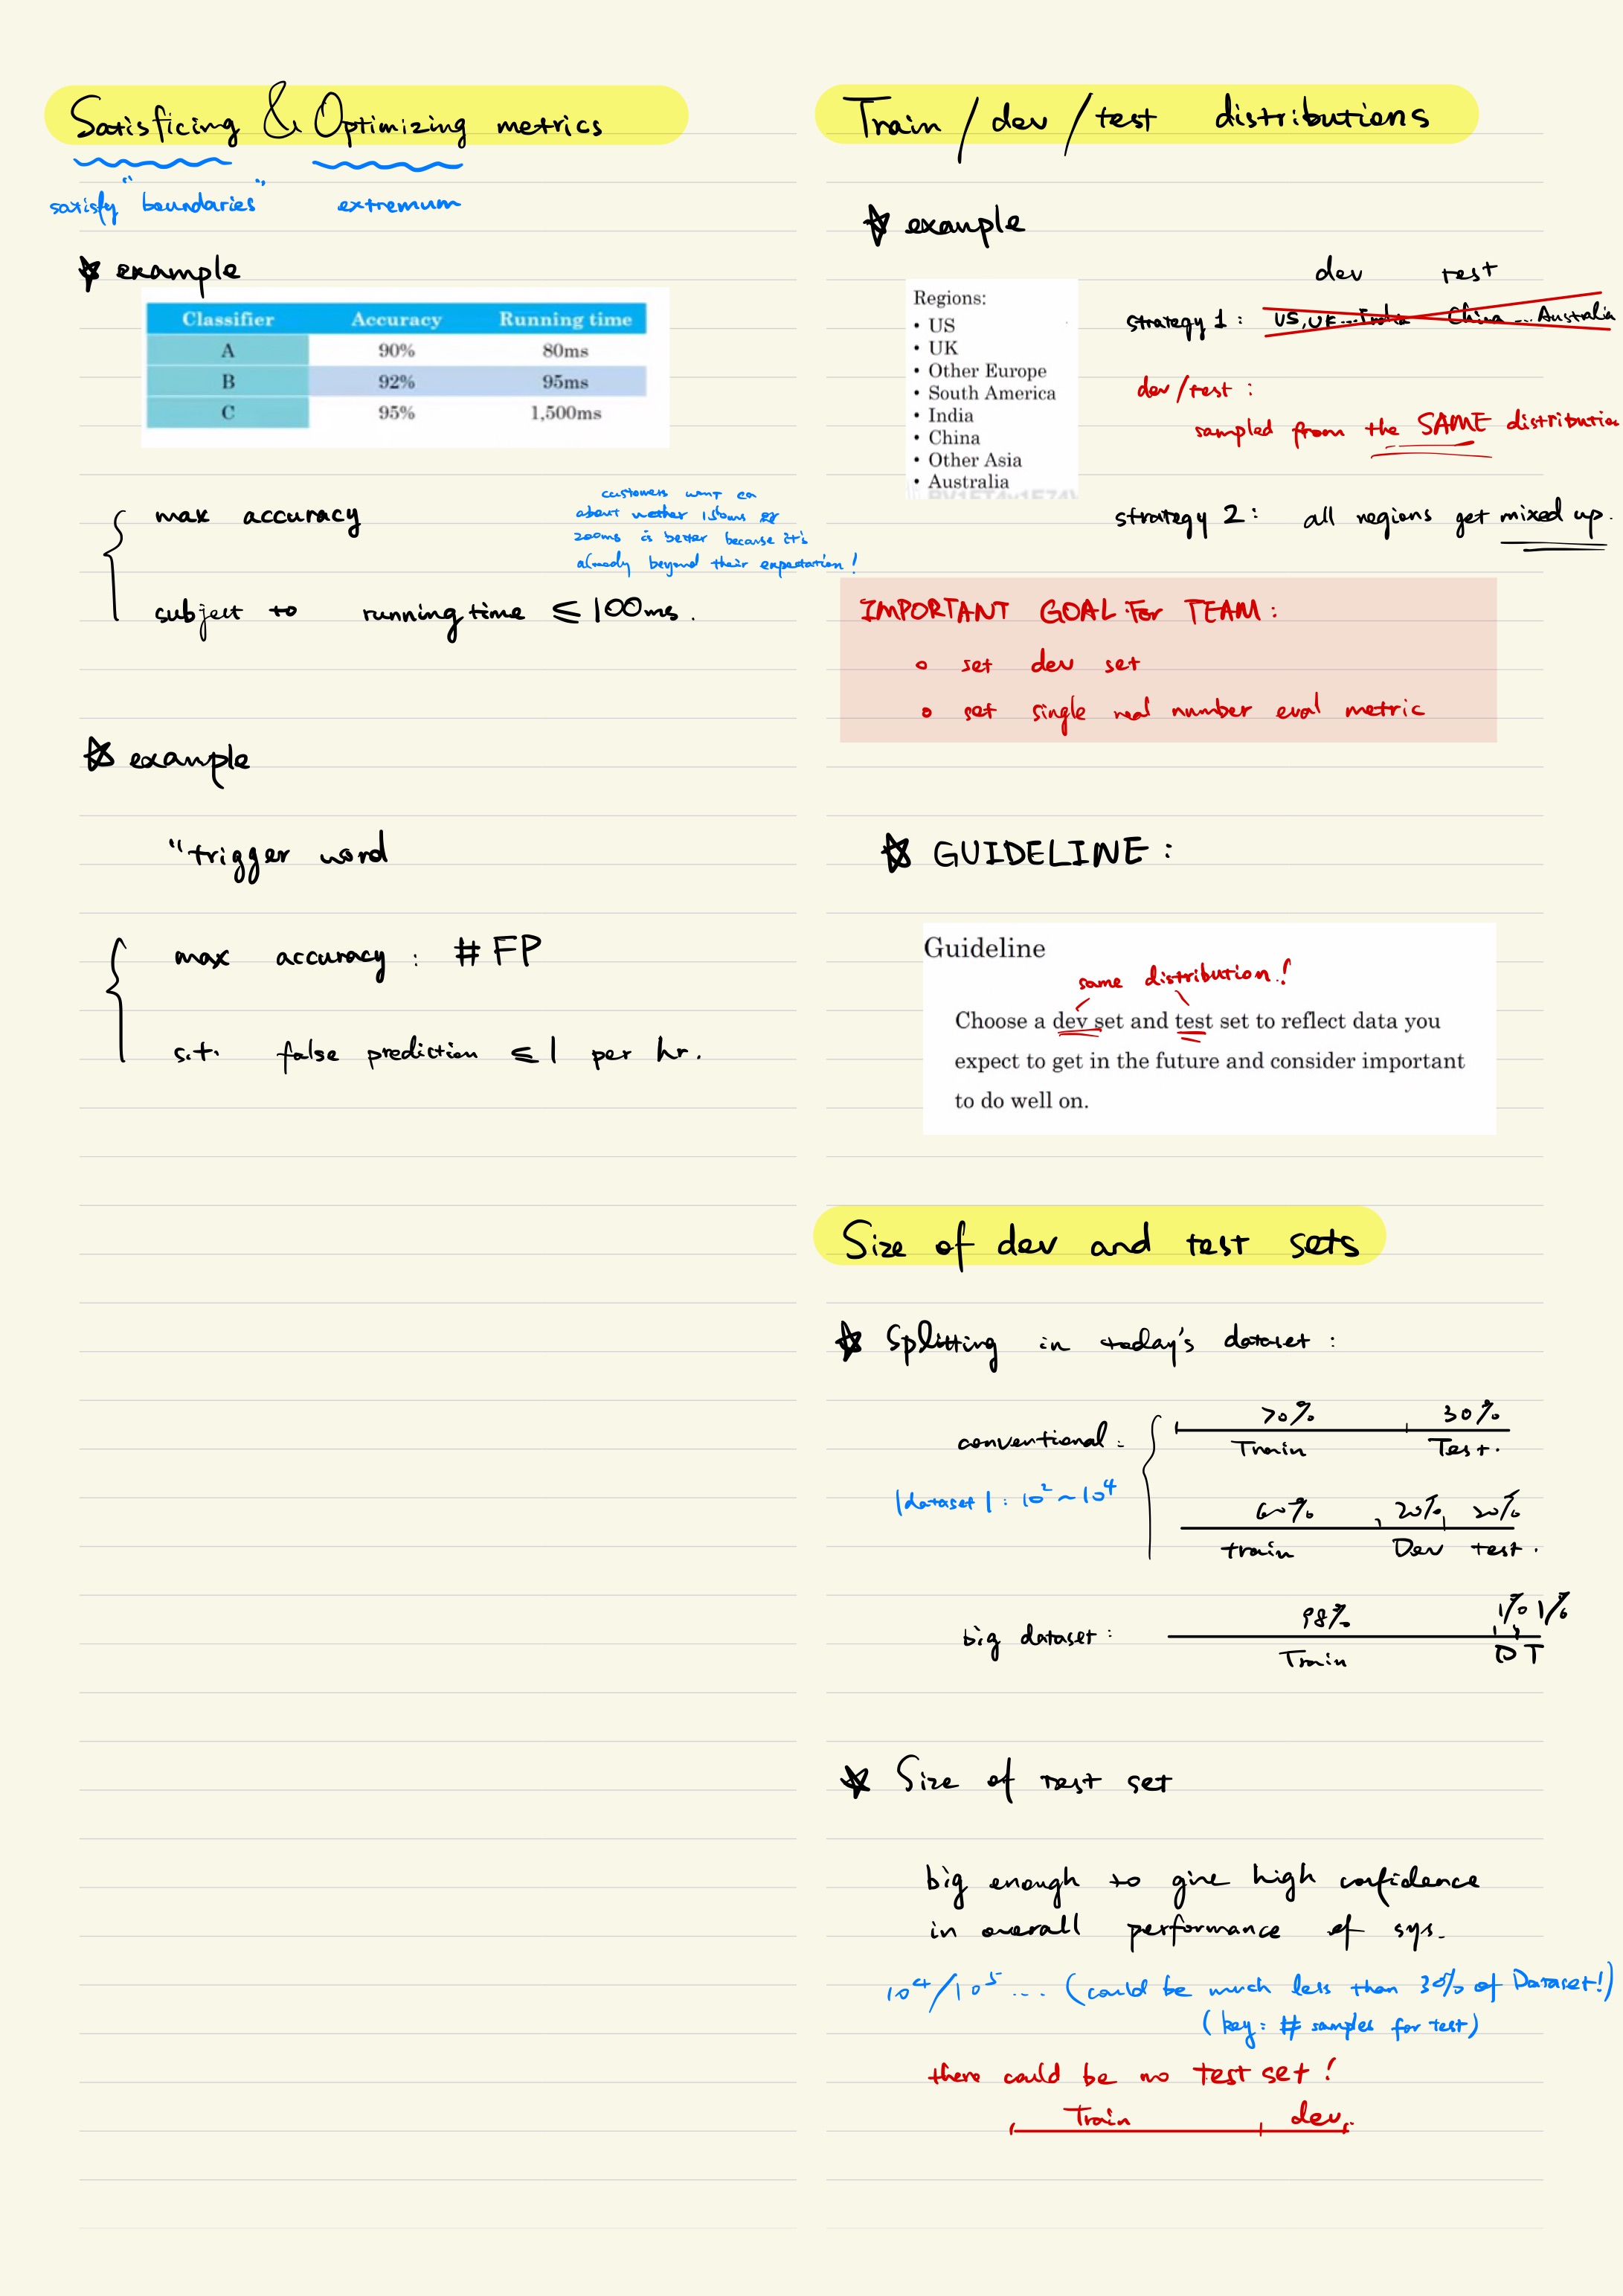 Satisficing & Optimizing metrics
satisfy "boundaries" extremum
☆ example
Classifier Accuracy Running time
A 90% 80ms
B 92% 95ms
C 95% 1,500ms
customers wont ca
about wether 150ms or
200ms is better because it's
already beyond their expectation!
max accuracy
subject to running time ≤ 100ms.
☆ example
"trigger word
max accuracy : # FP
s.t. false prediction ≤ 1 per hr.
Train / dev / test distributions
☆ example
Regions:
• US
• UK
• Other Europe
• South America
• India
• China
• Other Asia
• Australia
dev test
strategy 1 : US, UK...India China...Australia
dev/test :
sampled from the SAME distribution
strategy 2 : all regions get mixed up.
IMPORTANT GOAL For TEAM :
◦ set dev set
◦ set single real number eval metric
☆ GUIDELINE :
Guideline
same distribution!
Choose a dev set and test set to reflect data you
expect to get in the future and consider important
to do well on.
Size of dev and test sets
☆ Splitting in today's dataset :
70% 30%
conventional : Train Test.
|dataset| : 10² ~ 10⁴
60% 20% 20%
train Dev test.
98% 1% 1%
big dataset : Train D T
☆ Size of test set
big enough to give high confidence
in overall performance of sys.
10⁴/10⁵ ... (could be much less than 30% of Dataset!)
(key: # samples for test)
there could be no test set!
Train dev